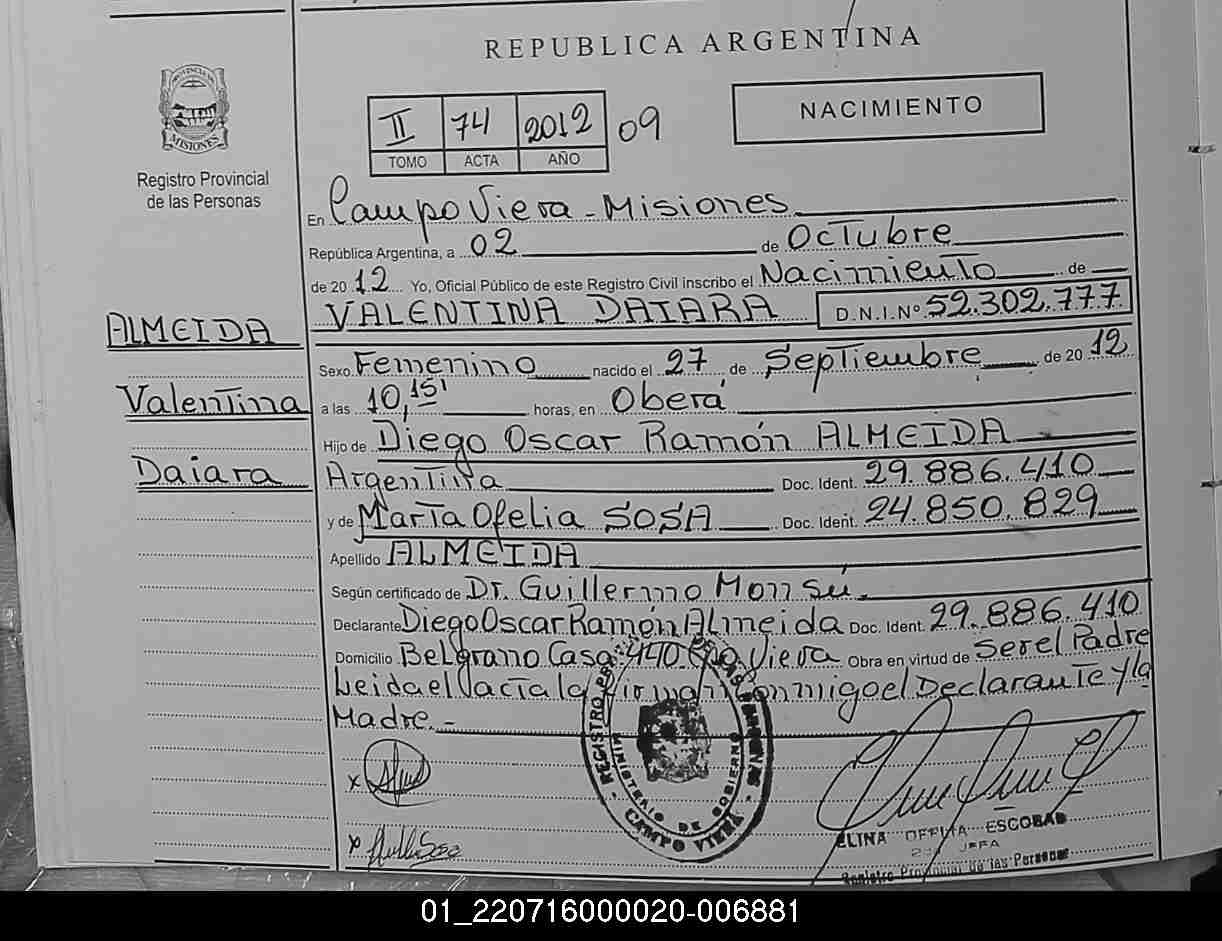 REPUBLICA ARGENTINA
PROVINCIA DE
MISIONES
Registro Provincial
de las Personas
II 74 2012 09
TOMO ACTA AÑO
NACIMIENTO
En Campo Viera - Misiones
República Argentina, a 02 de Octubre
de 2012 Yo, Oficial Público de este Registro Civil inscribo el Nacimiento de
VALENTINA DAIARA D.N.I.Nº 52.302.777
ALMEIDA
Valentina
Daiara
Sexo Femenino nacido el 27 de Septiembre de 2012
a las 10,15' horas, en Oberá
Hijo de Diego Oscar Ramón ALMEIDA
Argentina Doc. Ident. 29.886.410
y de María Ofelia SOSA Doc. Ident. 24.850.829
Apellido ALMEIDA
Según certificado de Dr. Guillermo Monsú.
Declarante Diego Oscar Ramón Almeida Doc. Ident. 29.886.410
Domicilio Belgrano Casa 440 Cpo Viera Obra en virtud de Ser el Padre
Leída el acta la firman conmigo el Declarante y la
Madre.-
REGISTRO DE LAS PERSONAS
MINISTERIO DE GOBIERNO
- CAMPO VIERA -
x
x Sosa
ELINA OFELIA ESCOBAR
JEFA
Registro Provincial de las Personas
01_220716000020-006881